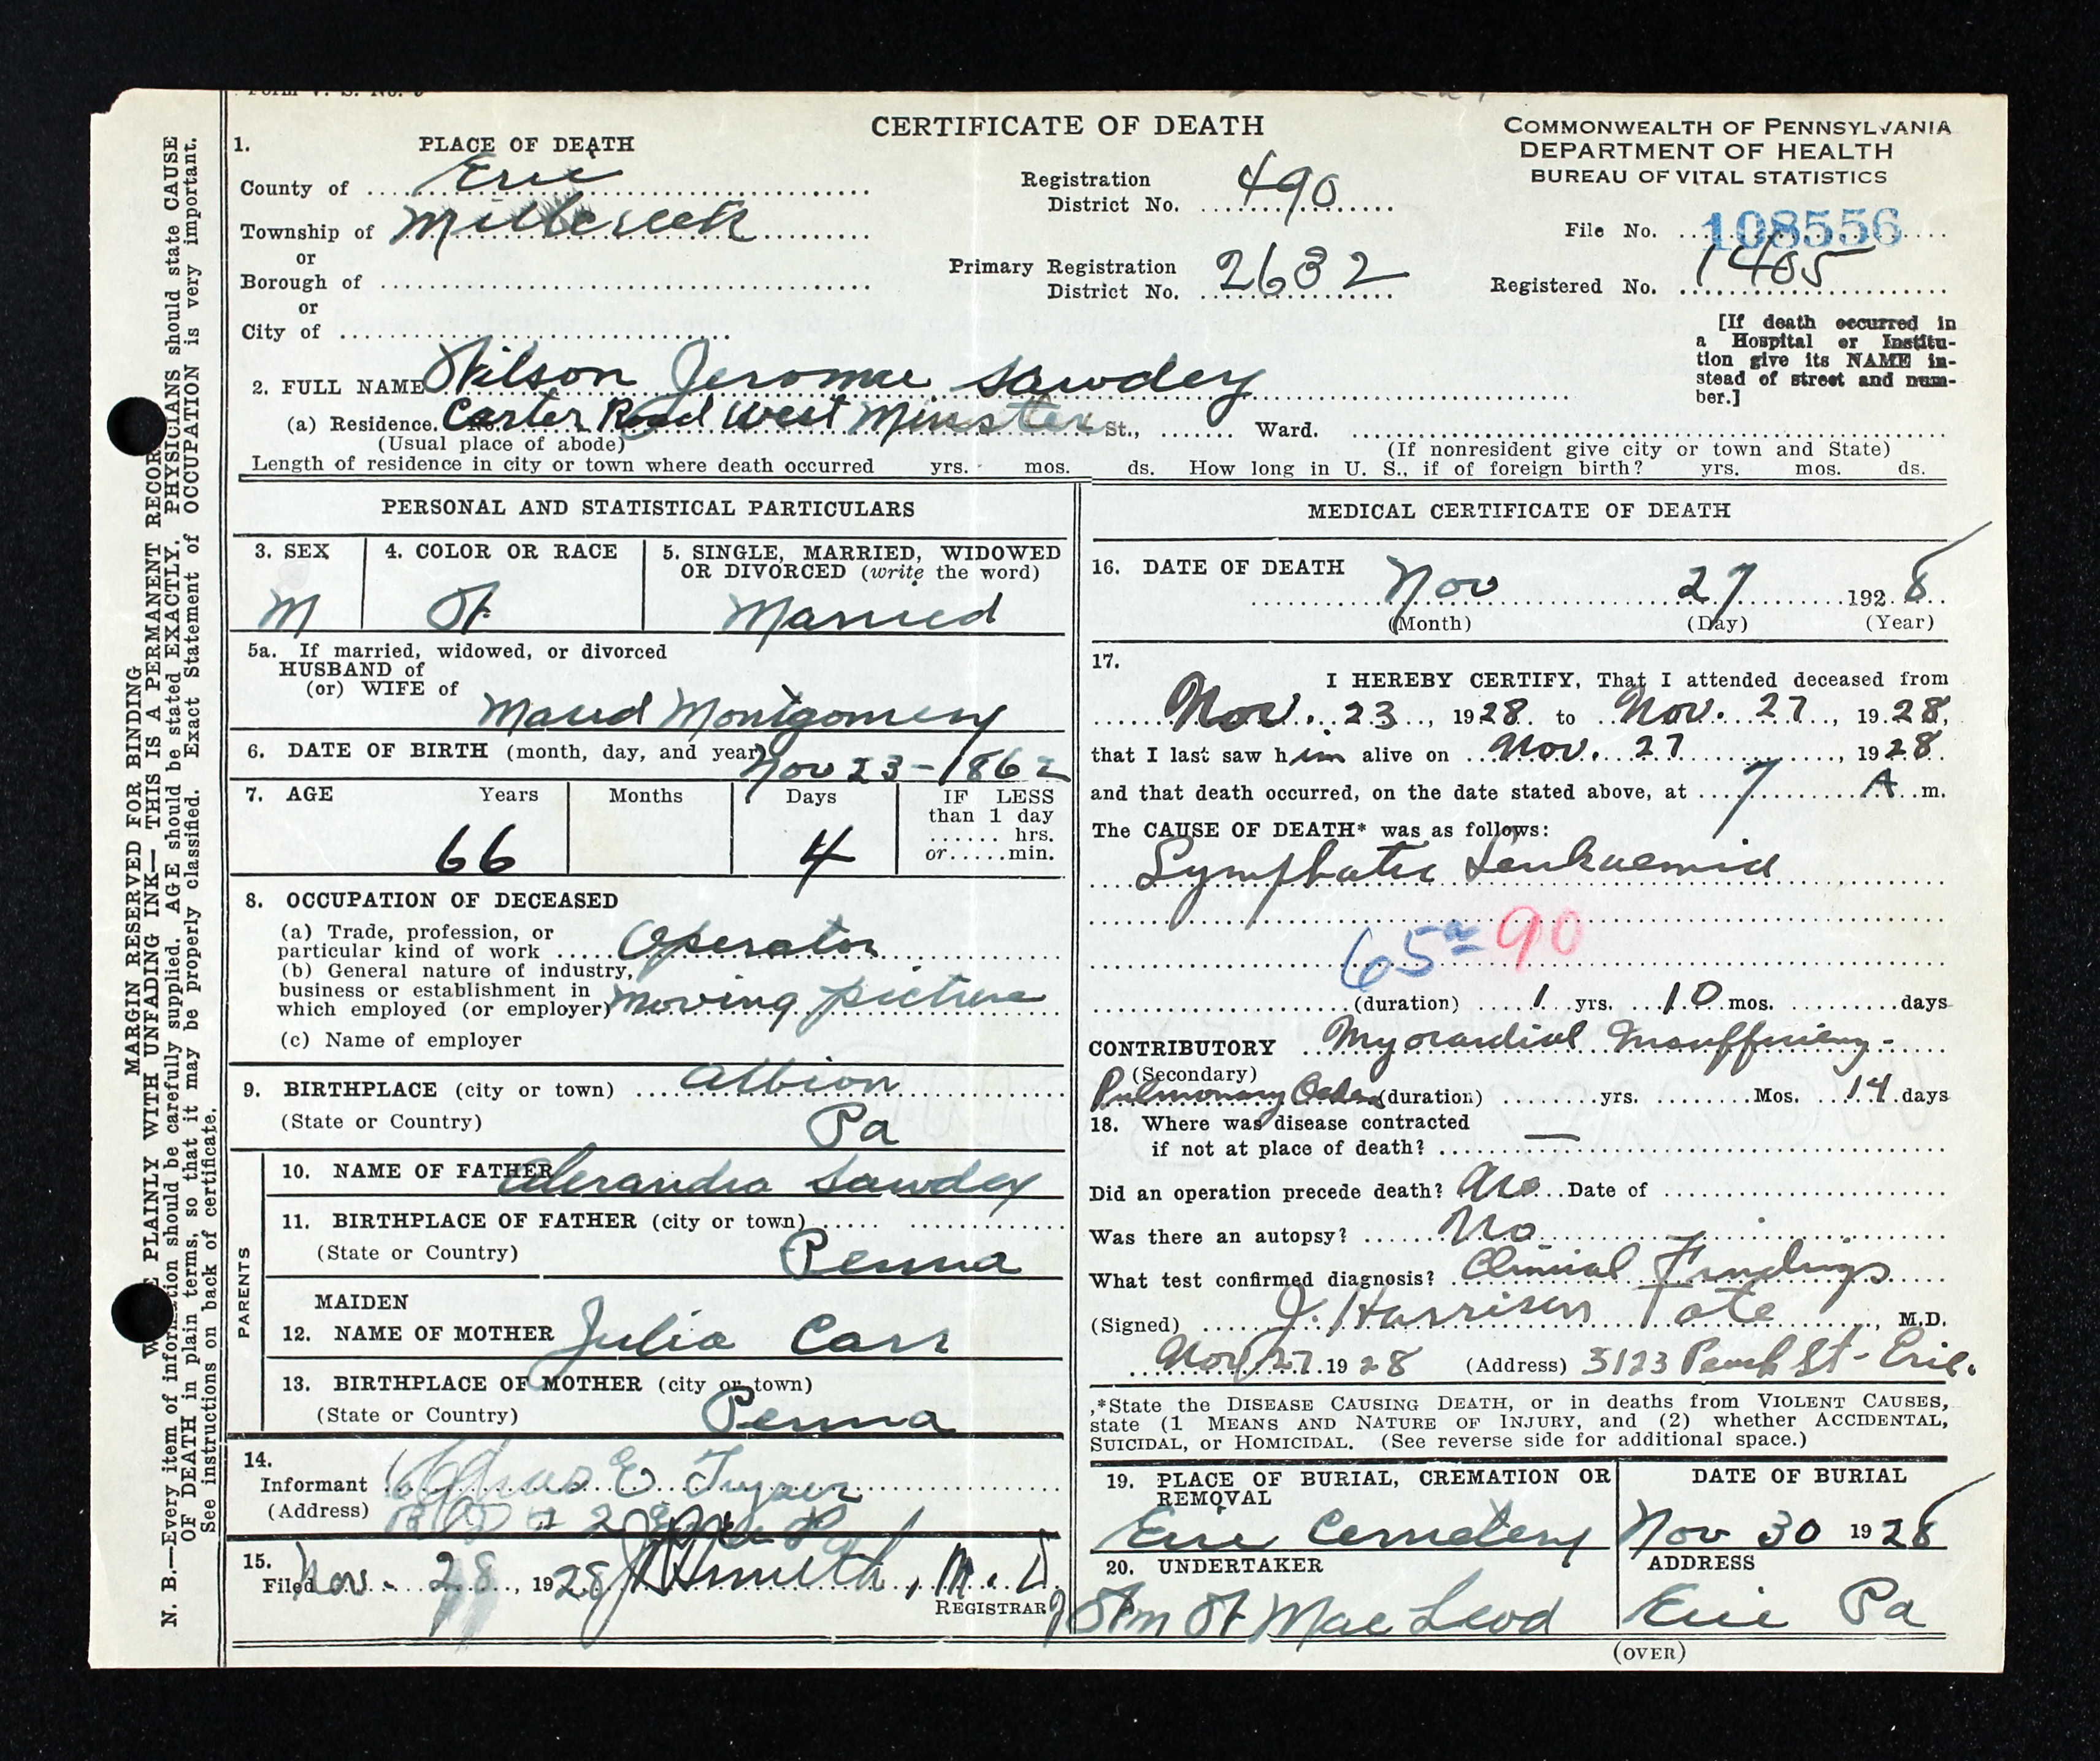 CERTIFICATE OF DEATH
COMMONWEALTH OF PENNSYLVANIA
DEPARTMENT OF HEALTH
BUREAU OF VITAL STATISTICS
1. PLACE OF DEATH
County of Erie
Township of Millcreek
or
Borough of
or
City of
Registration District No. 490
Primary Registration District No. 2632
File No. 108556
Registered No. 1405
[If death occurred in
a Hospital or Institu-
tion give its NAME in-
stead of street and num-
ber.]
2. FULL NAME Wilson Jerome Sawdey
(a) Residence. Carter Road West Minster St., Ward.
(Usual place of abode) (If nonresident give city or town and State)
Length of residence in city or town where death occurred yrs. mos. ds. How long in U. S., if of foreign birth? yrs. mos. ds.
PERSONAL AND STATISTICAL PARTICULARS
3. SEX M
4. COLOR OR RACE W
5. SINGLE, MARRIED, WIDOWED
OR DIVORCED (write the word)
Married
5a. If married, widowed, or divorced
HUSBAND of
(or) WIFE of
Maud Montgomery
6. DATE OF BIRTH (month, day, and year) Nov 23 - 1862
7. AGE Years Months Days IF LESS
than 1 day
hrs.
or min.
66 4
8. OCCUPATION OF DECEASED
(a) Trade, profession, or
particular kind of work Operator
(b) General nature of industry,
business or establishment in
which employed (or employer) moving picture
(c) Name of employer
9. BIRTHPLACE (city or town) Albion
(State or Country) Pa
PARENTS
10. NAME OF FATHER Alexandra Sawdey
11. BIRTHPLACE OF FATHER (city or town)
(State or Country) Penna
MAIDEN
12. NAME OF MOTHER Julia Carr
13. BIRTHPLACE OF MOTHER (city or town)
(State or Country) Penna
14.
Informant Chas E.
(Address)
15.
Filed Nov. 28, 1928 Smith, M.D.
REGISTRAR
MEDICAL CERTIFICATE OF DEATH
16. DATE OF DEATH Nov 27 1928
(Month) (Day) (Year)
17.
I HEREBY CERTIFY, That I attended deceased from
Nov. 23, 1928 to Nov. 27, 1928,
that I last saw him alive on Nov. 27, 1928
and that death occurred, on the date stated above, at 7 A m.
The CAUSE OF DEATH* was as follows:
Lymphatic Leukaemia
65a 90
(duration) 1 yrs. 10 mos. days
CONTRIBUTORY Myocardial Insufficiency -
(Secondary)
Pulmonary Oedema (duration) yrs. Mos. 14 days
18. Where was disease contracted
if not at place of death? —
Did an operation precede death? No Date of
Was there an autopsy? No
What test confirmed diagnosis? Clinical Findings
(Signed) J. Harrison Tate, M.D.
Nov. 27. 1928 (Address) 3123 Peach St - Erie.
*State the DISEASE CAUSING DEATH, or in deaths from VIOLENT CAUSES,
state (1 MEANS AND NATURE OF INJURY, and (2) whether ACCIDENTAL,
SUICIDAL, or HOMICIDAL. (See reverse side for additional space.)
19. PLACE OF BURIAL, CREMATION OR
REMOVAL
Erie Cemetery
DATE OF BURIAL
Nov 30 1928
20. UNDERTAKER
Wm W Mac Leod
ADDRESS
Erie Pa
(OVER)
MARGIN RESERVED FOR BINDING
PLAINLY WITH UNFADING INK— THIS IS A PERMANENT RECOR
N. B.—Every item of information should be carefully supplied. AGE should be stated EXACTLY. PHYSICIANS should state CAUSE
OF DEATH in plain terms, so that it may be properly classified. Exact Statement of OCCUPATION is very important.
See instructions on back of certificate.